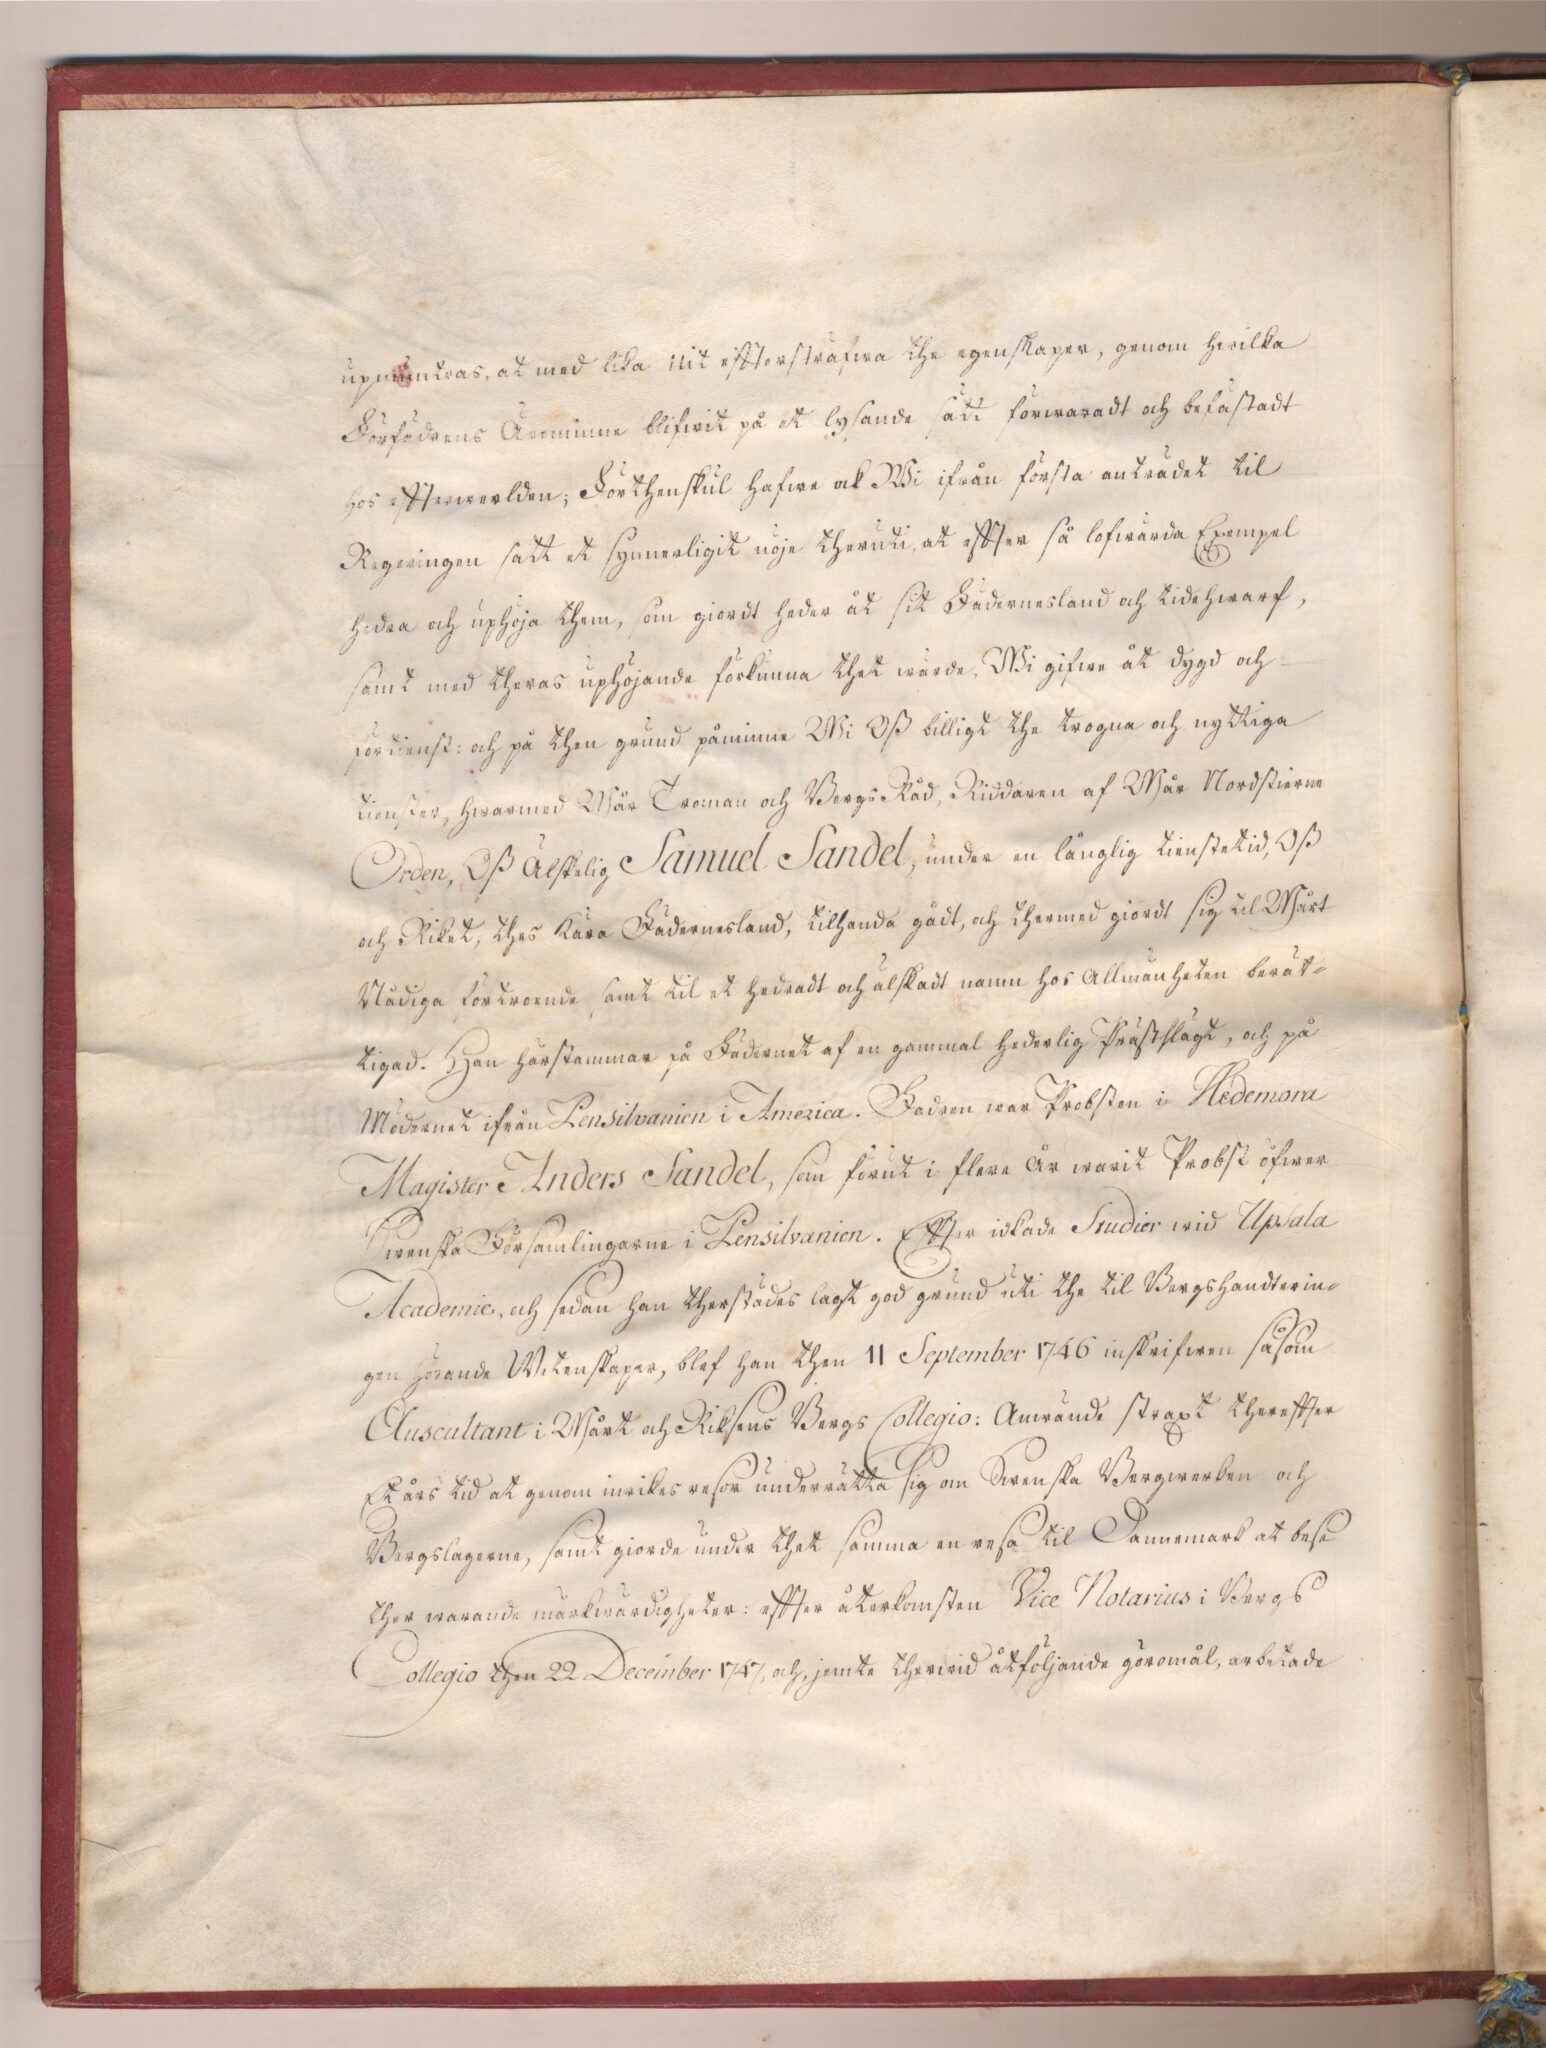 upmuntras, at med lika nit efftersträfwa the egenskaper, genom hwilka
Förfädrens Äreminne blifwit på et lysande sätt förwaradt och befästadt
hos effterwerlden; Förthenskul hafwe ock Wi ifrån första anträdet til
Regeringen satt et synnerligit nöje theruti, at effter så lofwärda Exempel
hedra och uphöja them, som giordt heder åt sit Fädernesland och tidehwarf,
samt med theras uphöjande förkunna thet wärde, Wi gifwe åt dygd och
förtienst: och på then grund påminne Wi Oß billigt the trogna och nyttiga
tienster, hwarmed Wår Troman och BergsRåd, Riddaren af Wår Nordstierne
Orden, Oß Älskelig Samuel Sandel, under en långlig tienstetid, Oß
och Riket, thes kära Fädernesland, tillhanda gådt, och thermed giordt sig til Wårt
Nådiga förtroende samt til et hedradt och älskadt namn hos Allmänheten berät-
tigad. Han härstammar på Fädernet af en gammal hederlig Prästslägt, och på
Mödernet ifrån Pensilvanien i America. Fadren war Probsten i Hedemora
Magister Anders Sandel, som förut i flere År warit Probst öfwer
Swenska Församlingarne i Pensilvanien. Effter idkade Studier wid Upsala
Academie, och sedan han therstädes lagt god grund uti the til Bergshandterin-
gen hörande Wetenskaper, blef han then 11 September 1746 inskrifwen såsom
Auscultant i Wårt och Riksens Bergs Collegio: Anwände straxt thereffter
Et års tid at genom inrikes resor underrätta sig om Swenska Bergwerken och
Bergslagerne, samt giorde under thet samma en resa til Dannemark at bese
ther warande märkwärdigheter: effter återkomsten Vice Notarius i Bergs
Collegio then 22 December 1747, och, jemte therwid åtföljande göromål, arbetade